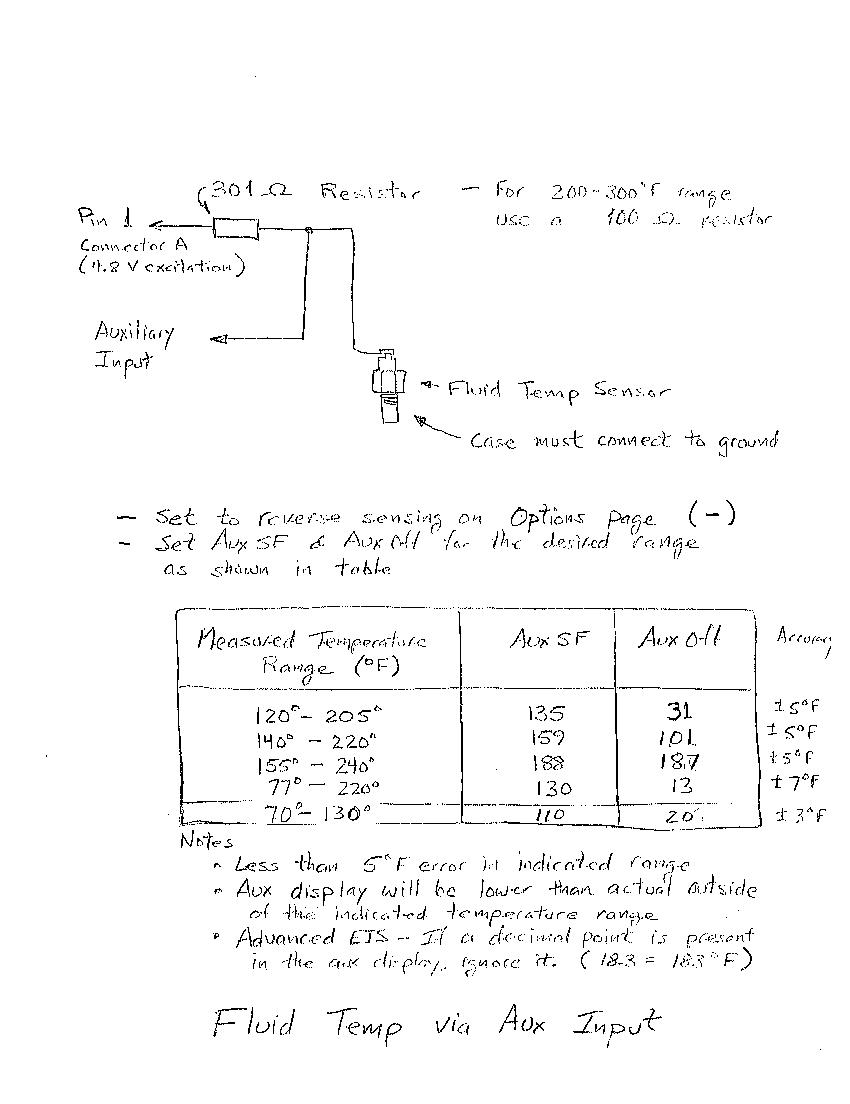 301 Ω Resistor — For 200-300°F range
use a 100 Ω resistor
Pin 1
Connector A
(4.8 V excitation)
Auxiliary
Input
Fluid Temp Sensor
Case must connect to ground
— Set to reverse sensing on Options page (-)
— Set Aux SF & Aux Off for the desired range
as shown in table
Measured Temperature Range (°F) Aux SF Aux Off Accuracy
120° - 205° 135 31 ±5°F
140° - 220° 159 101 ±5°F
155° - 240° 188 187 ±5°F
77° - 220° 130 13 ±7°F
70° - 130° 110 20 ±3°F
Notes
• Less than 5°F error in indicated range
• Aux display will be lower than actual outside
of the indicated temperature range
• Advanced ETS - If a decimal point is present
in the aux display, ignore it. (18.3 = 183°F)
Fluid Temp via Aux Input